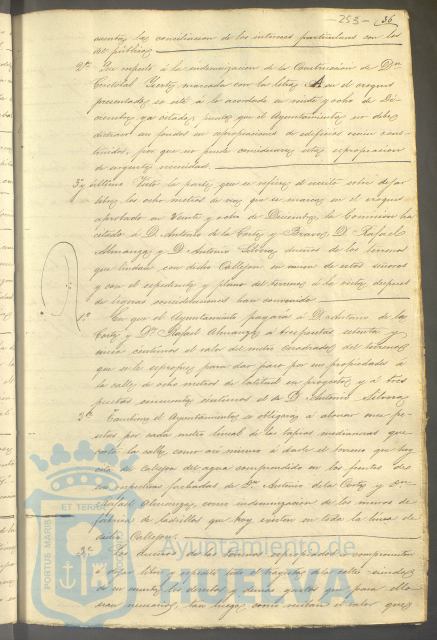 253 - 36
cuenta la conciliacion de los intereses particulares con los
del público.
2º Por respeto á la indemnizacion de la Construccion de Dn
Cristobal marcada con la letra A en el croquis
presentado se esté á lo acordado en veinte y ocho de Di-
ciembre ya citado, puesto que el Ayuntamiento no debe
distraer sus fondos en expropiaciones de edificios recien cons-
truidos, por que no puede considerarse esta expropiacion
de urgente necesidad.
3º y último. Vista la parte que se refiere el escrito sobre dejar
libres los ocho metros de via que se marca en el croquis
aprobado en Veinte y ocho de Diciembre, la Comision ha
citado á D. Antonio de la Corte y Bravo, D. Rafael
Almanza y D. Antonio dueños de los terrenos
que lindan con dicho Callejon en union de estos señores
y con el expediente y plano del terreno á la vista, despues
de ligeras consideraciones han convenido.
1º En que el Ayuntamiento pagará á D. Antonio de la
Corte y Dn Rafael Almanza á trespesetas setenta y
cinco centimos el valor del metro cuadrado del terreno
que se le expropie para dar paso por sus propiedades á
la calle de ocho metros de latitud en proyecto y á tres
pesetas cincuenta centimos el de D. Antonio
2º Tambien el Ayuntamiento se obligará á abonar una pe-
seta por cada metro lineal de las tapias medianeras que
la calle, como asi mismo á darle el terreno que hoy
de callejon del agua comprendido en los frentes de
respectivas fachadas de Dn Antonio de la Corte y Dn
Rafael Almanza, como indemnizacion de los muros de
fabrica de ladrillos que hoy existen en toda la linea de
dicho Callejon.
3º Los dueños de los terrenos se comprometen
á dejar libre el trayecto de la calle siendo
de su cuenta los derribos y demás gastos que para ello
sean necesarios, tan luego como reciban el valor que
PORTUS MARIS ET TERRAE
Ayuntamiento de
HUELVA